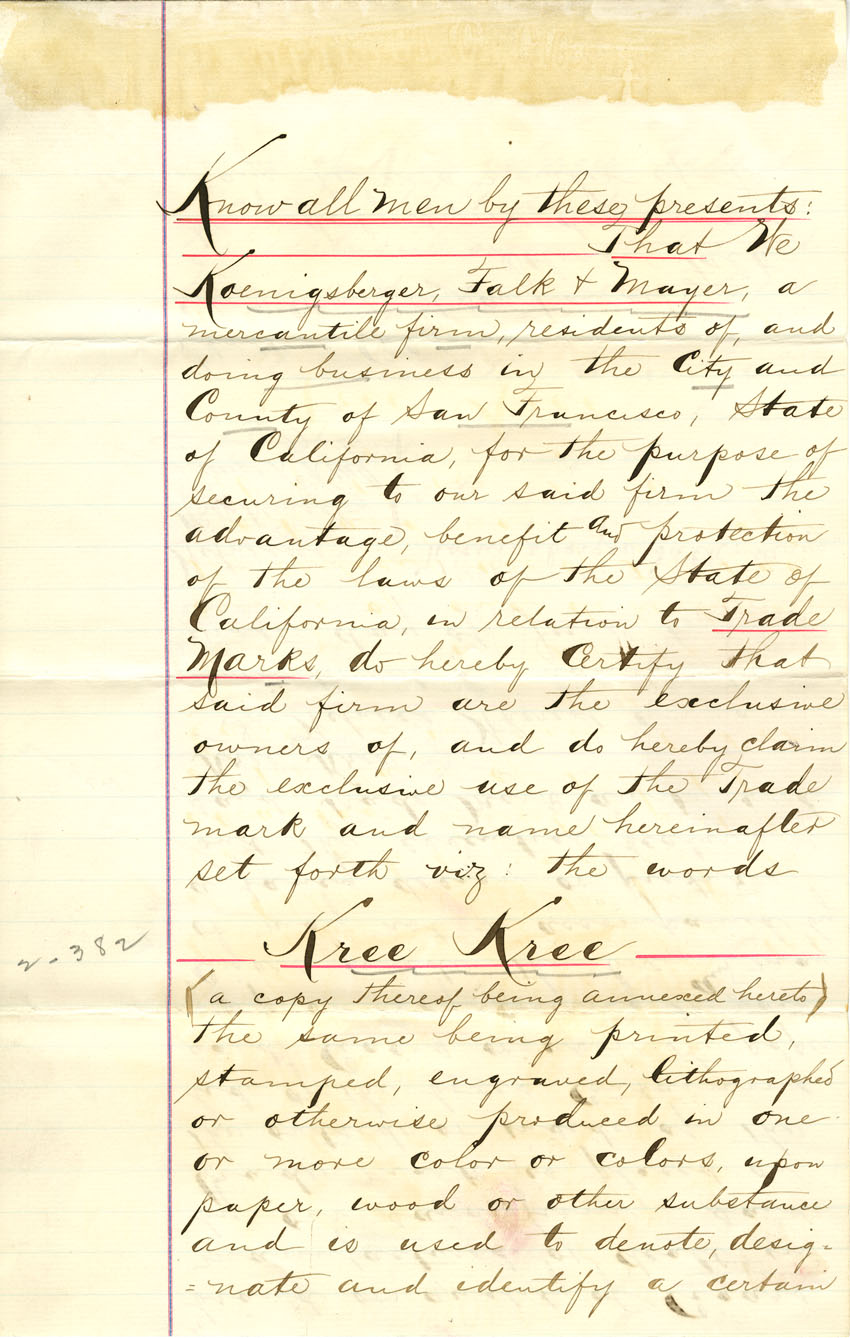 Know all men by these presents:
That We
Koenigsberger, Falk & Mayer, a
mercantile firm, residents of, and
doing business in the City and
County of San Francisco, State
of California, for the purpose of
securing to our said firm the
advantage, benefit and protection
of the laws of the State of
California, in relation to Trade
Marks, do hereby Certify that
said firm are the exclusive
owners of, and do hereby claim
the exclusive use of the Trade
mark and name hereinafter
set forth viz: the words
Kree Kree
2-382
(a copy thereof being annexed hereto)
the same being printed,
stamped, engraved, lithographed
or otherwise produced in one
or more color or colors, upon
paper, wood or other substance
and is used to denote, desig=
=nate and identify a certain